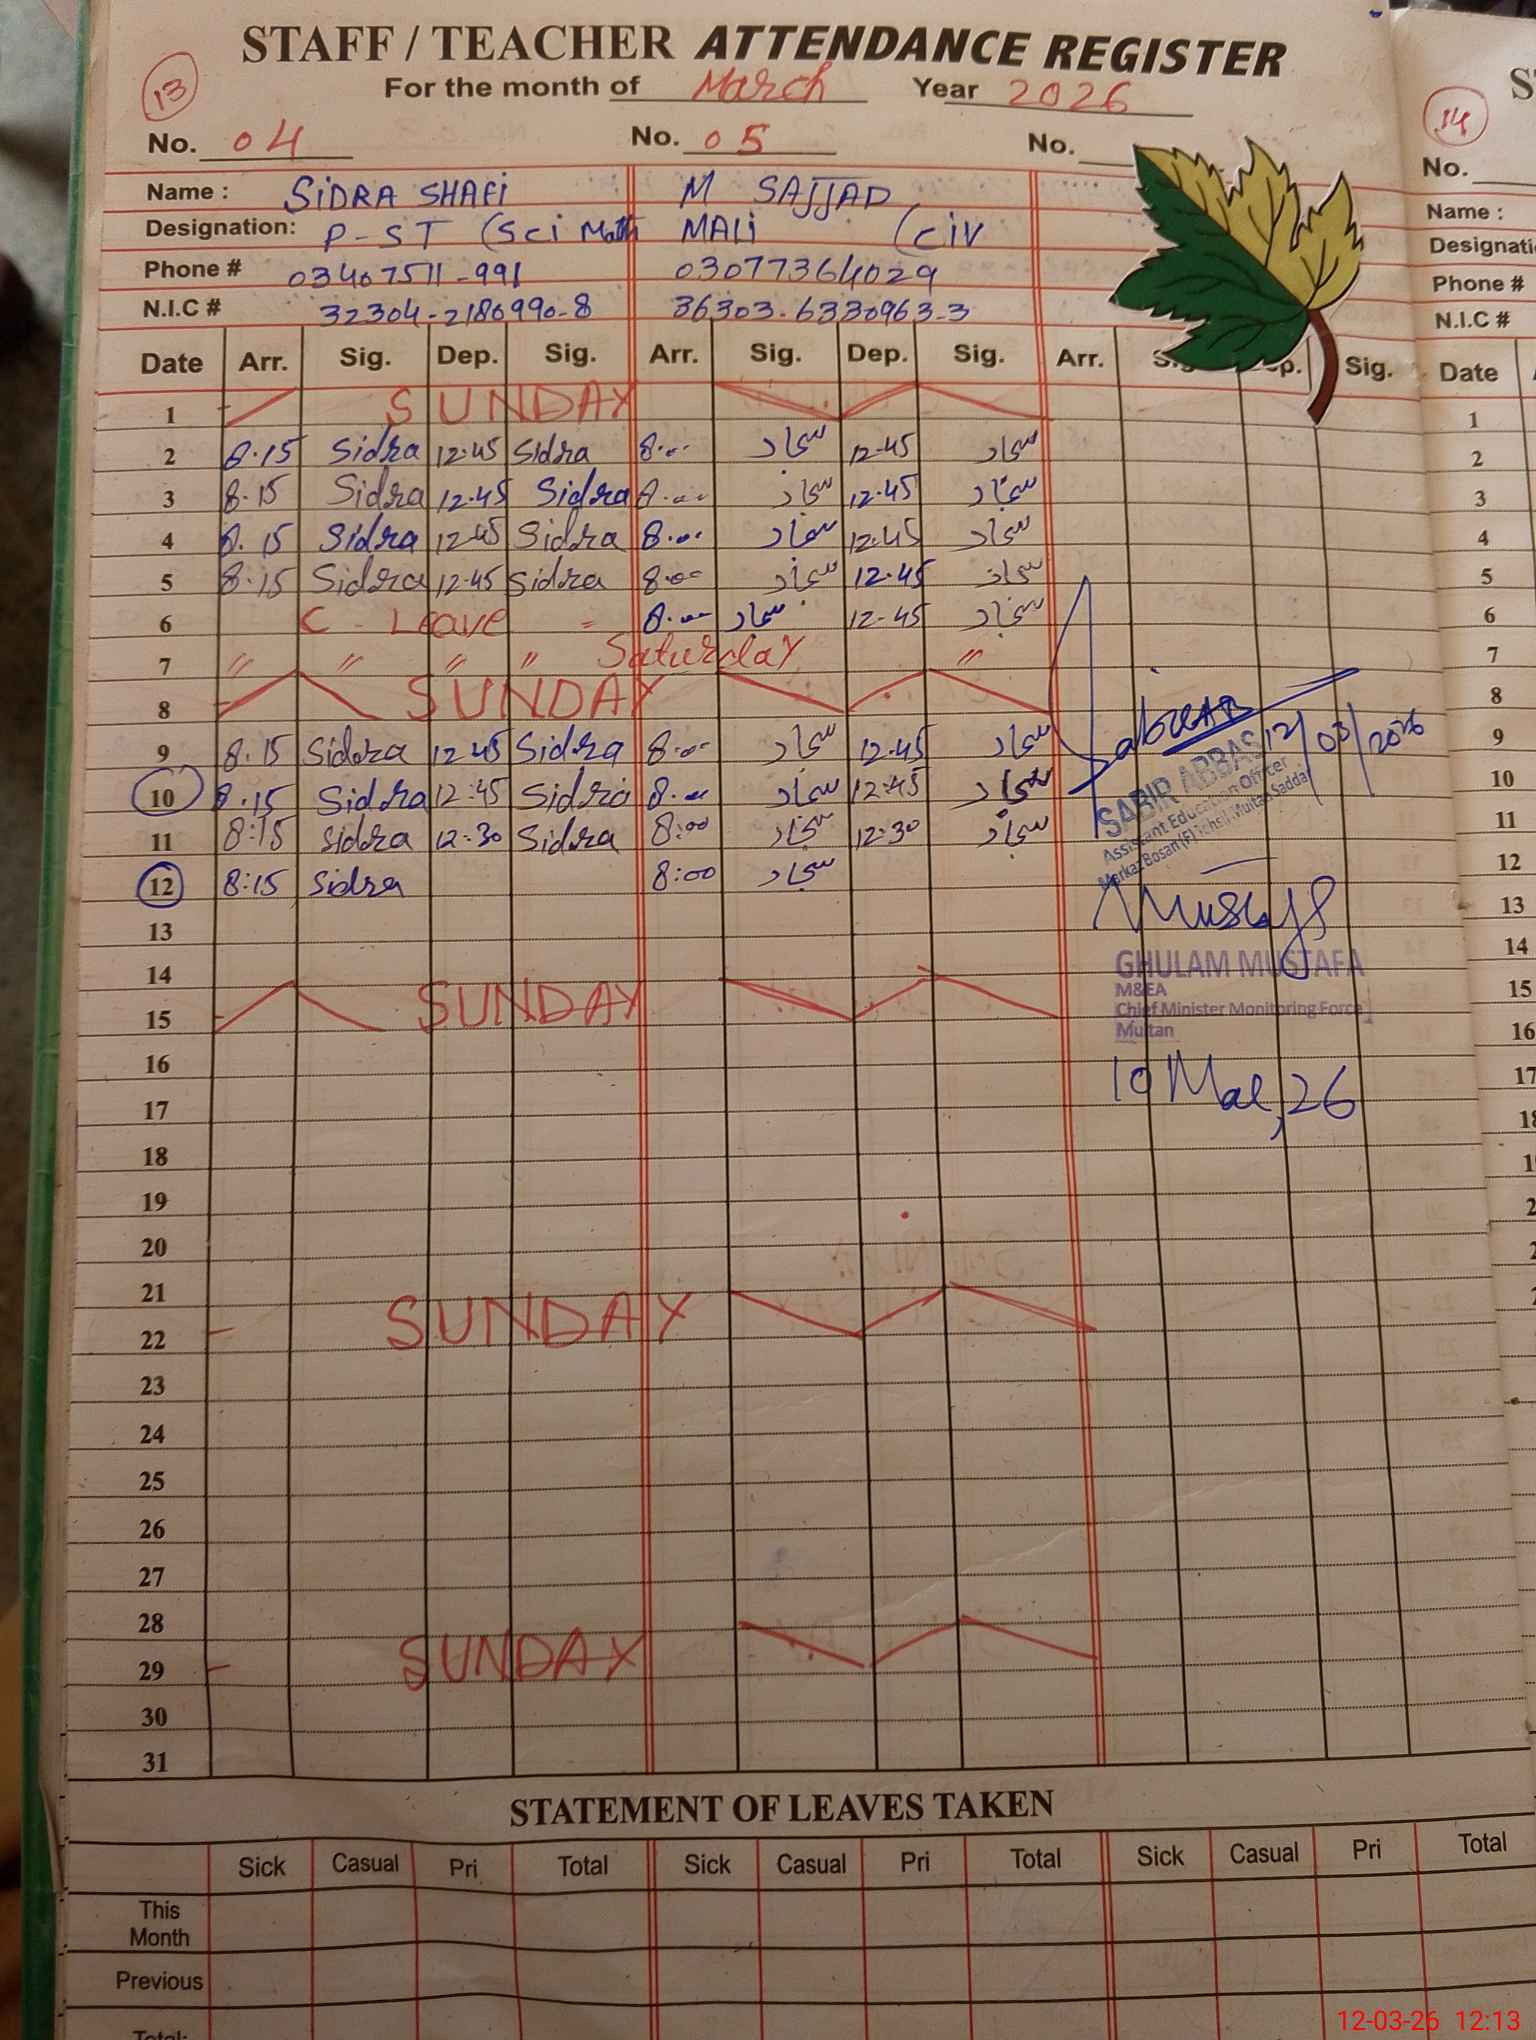 STAFF / TEACHER ATTENDANCE REGISTER
13
For the month of March Year 2026
No. 04 No. 05 No.
Name : SIDRA SHAFI M SAJJAD
Designation: P-ST (Sci Math MALI (CIV
Phone # 03407511-991 03077364029
N.I.C # 32304-2180990-8 36303-6330963-3
Date Arr. Sig. Dep. Sig. Arr. Sig. Dep. Sig. Arr. Sig.
1 SUNDAY
2 8.15 Sidra 12.45 Sidra 8.00 سجاد 12-45 سجاد
3 8.15 Sidra 12.45 Sidra 8.00 سجاد 12.45 سجاد
4 8.15 Sidra 12.45 Sidra 8.00 سجاد 12.45 سجاد
5 8.15 Sidra 12.45 Sidra 8.00 سجاد 12.45 سجاد
6 C - Leave = 8.00 سجاد 12-45 سجاد
7 " " " " Saturday "
8 SUNDAY
9 8.15 Sidra 12.45 Sidra 8.00 سجاد 12.45 سجاد
10 8.15 Sidra 12:45 Sidra 8.00 سجاد 12:45 سجاد
11 8:15 Sidra 12:30 Sidra 8:00 سجاد 12:30 سجاد
12 8:15 Sidra 8:00 سجاد
13
14
15 SUNDAY
16
17
18
19
20
21
22 SUNDAY
23
24
25
26
27
28
29 SUNDAY
30
31
12/03/2026
SABIR ABBAS
Assistant Education Officer
Markaz Bosan (F) Tehsil Multan Saddar
Mustafa
GHULAM MUSTAFA
M&EA
Chief Minister Monitoring Force
Multan
10 Mar, 26
STATEMENT OF LEAVES TAKEN
Sick Casual Pri Total Sick Casual Pri Total Sick Casual Pri Total
This
Month
Previous
Total:
14
No.
Name :
Phone #
N.I.C #
Date
1
2
3
4
5
6
7
8
9
10
11
12
13
14
15
16
17
12-03-26 12:13